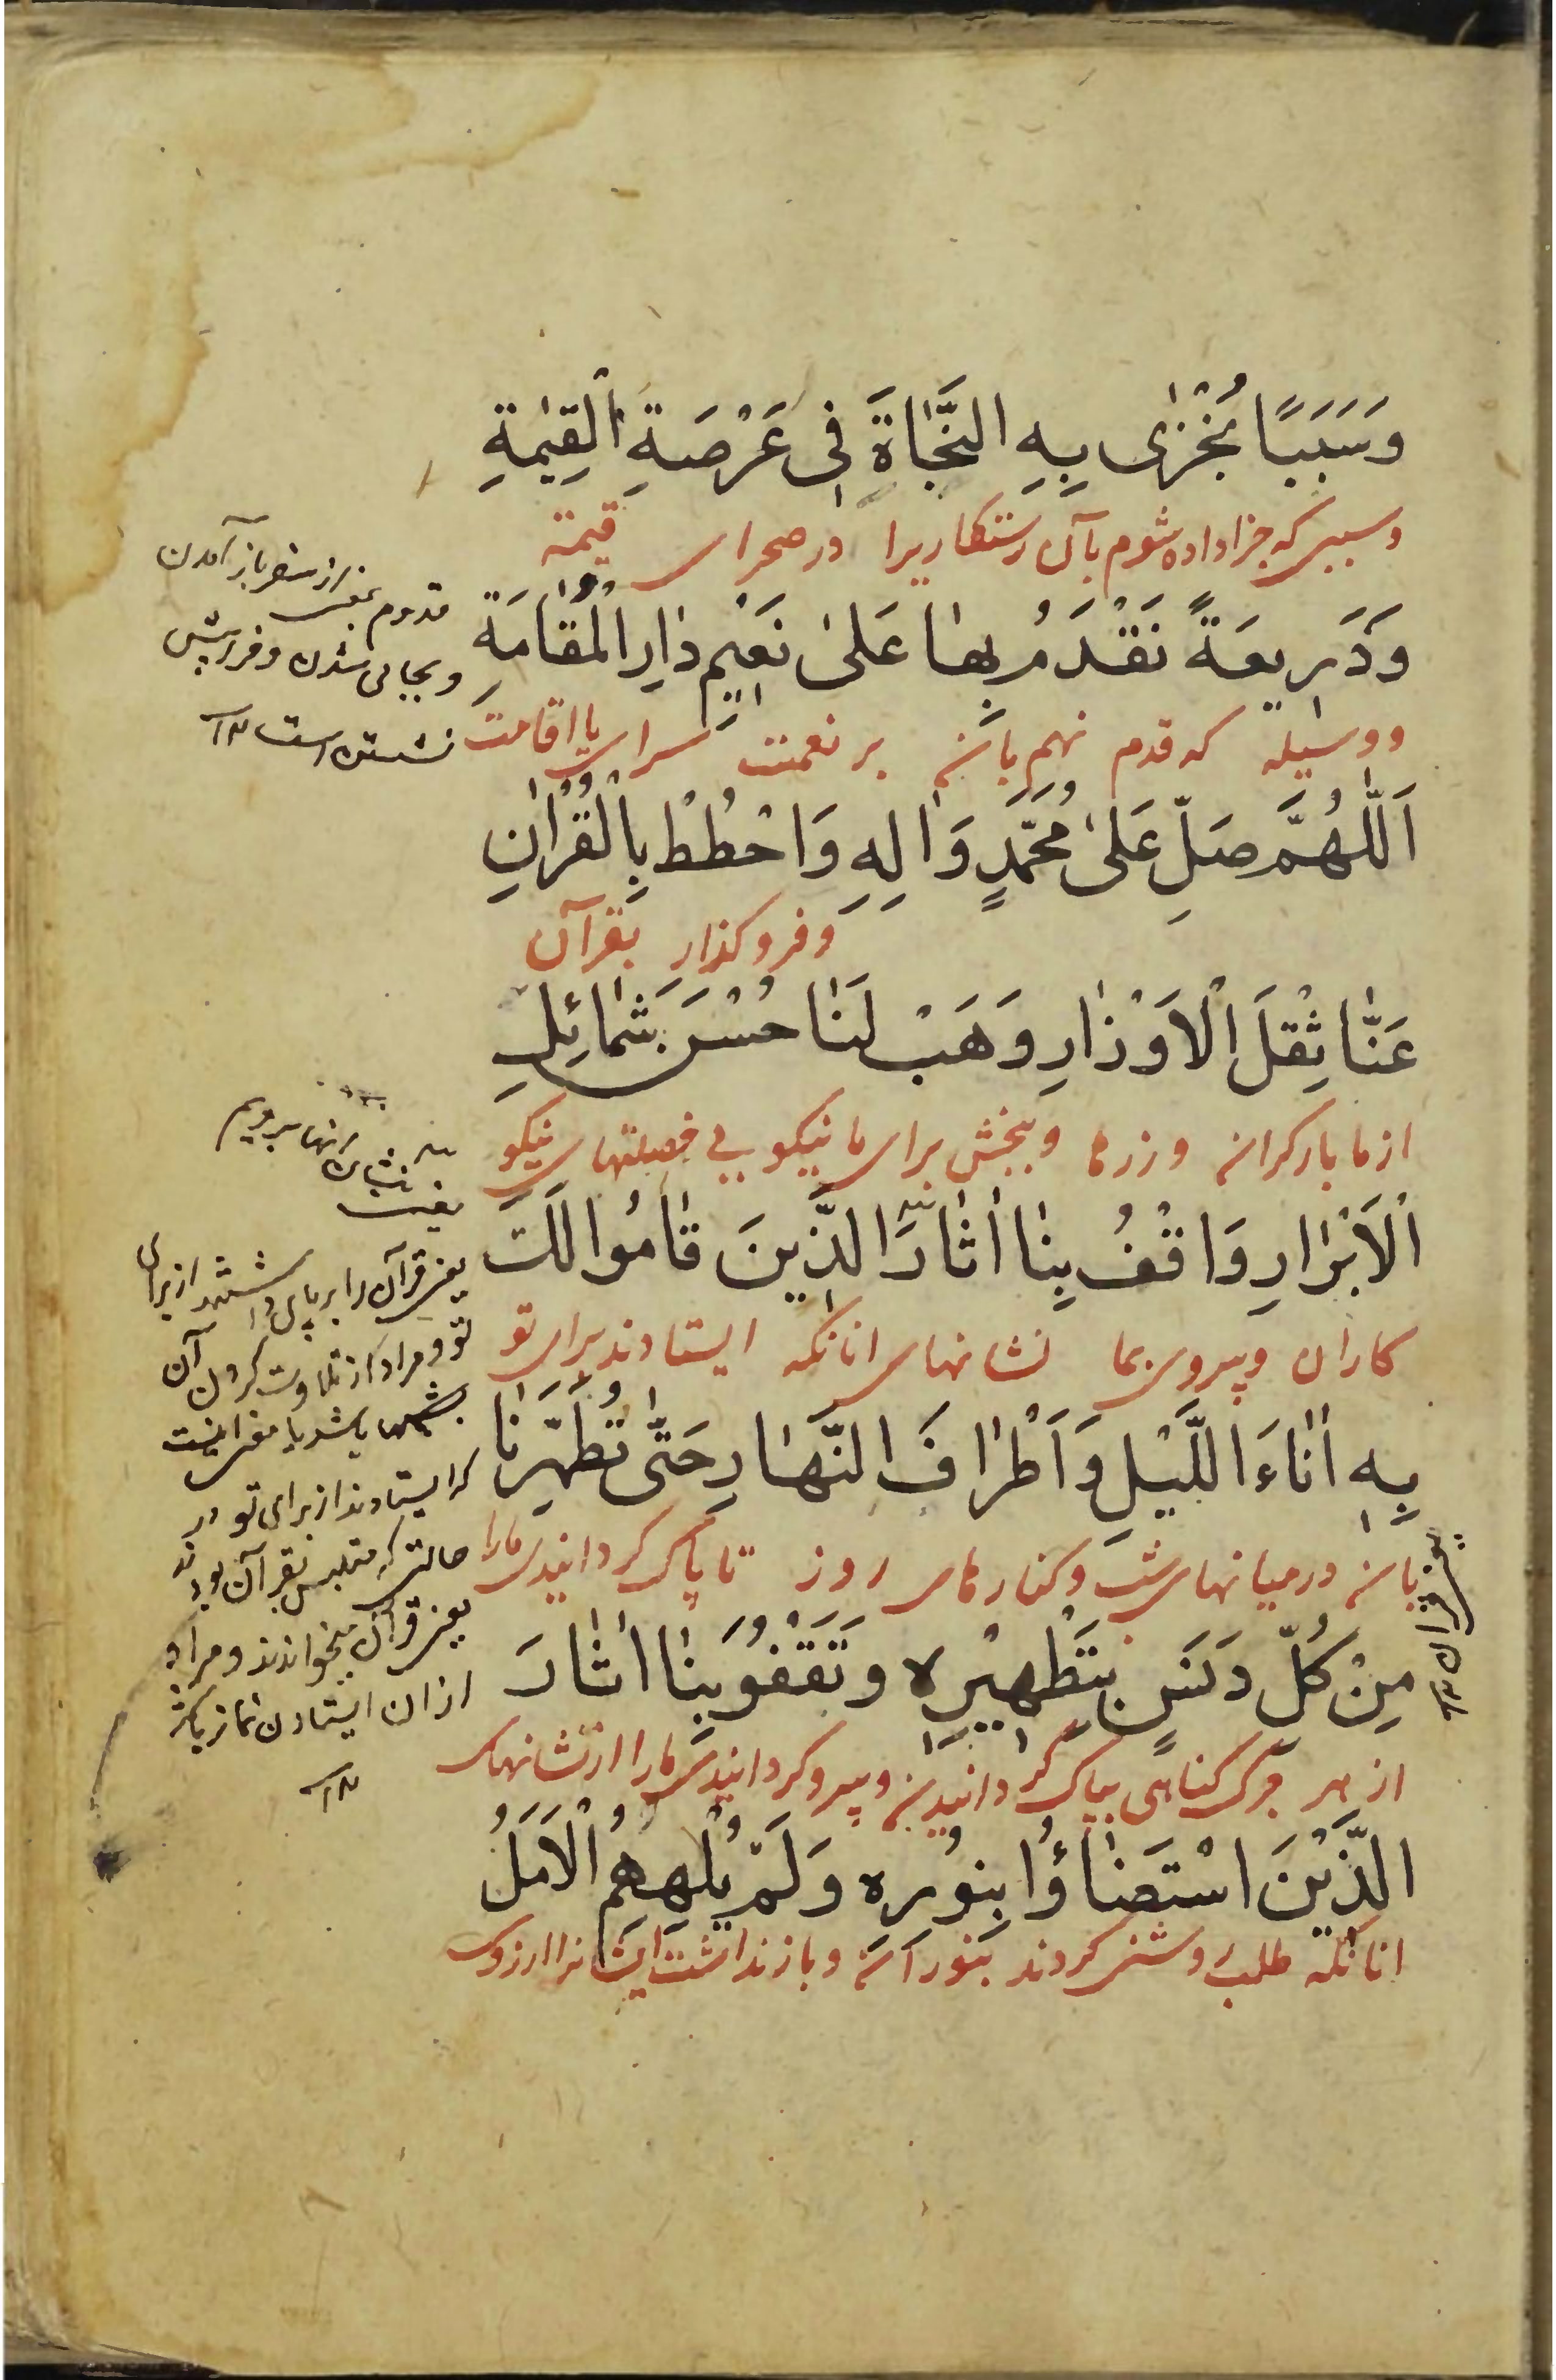 وَسَبَبًا نُجْزٰى بِهِ النَّجَاةَ فِى عَرْصَةِ الْقِيٰمَةِ
وسببی که جزا داده شوم بآن رستکاریرا در صحرای قیمة
وَذَرِيعَةً نَقْدَمُ بِهَا عَلىٰ نَعِيمِ دَارِ الْمُقَامَةِ
ووسیله که قدم نهم بآن بر نعمت سرای با اقامت
اَللّٰهُمَّ صَلِّ عَلىٰ مُحَمَّدٍ وَاٰلِهِ وَاحْطُطْ بِالْقُرْاٰنِ
وفرو کذار بقرآن
عَنَّا ثِقْلَ الْاَوْزَارِ وَهَبْ لَنَا حُسْنَ شَمَائِلِ
از ما بار کران وزرها وببخش برای ما نیکویی خصلتهای نیکو
الْاَبْرَارِ وَاقْفُ بِنَا اٰثَارَ الَّذِينَ قَامُوا لَكَ
کاران وپیروی بما نشانهای انانکه ایستادند برای تو
بِهِ اٰنَاءَ اللَّيْلِ وَاَطْرَافَ النَّهَارِ حَتّٰى تُطَهِّرَنَا
بآن درمیانهای شب وکنارهای روز تا پاک کردانیدی مارا
مِنْ كُلِّ دَنَسٍ بِتَطْهِيرِهِ وَتَقْفُوَ بِنَا اٰثَارَ
از هر چرک کناهی بپاک کردانیدن وپیرو کردانیدی مارا از نشانهای
الَّذِينَ اسْتَضَاؤُا بِنُورِهِ وَلَمْ يُلْهِهِمُ الْاَمَلُ
انانکه طلب روشنی کردند بنور آن وباز نداشت ایشانرا ارزوی
قدوم بمعنی از سفر باز آمدن
وبجایی شدن وفرو پیش
نشستن است ١٢
یعنی قرآن را بر پای داشتند از برای
تو ومراد از تلاوت کردن آن
بشبها باشد یا معنی اینست
که ایستادند از برای تو در
حالتی که متلبس بقرآن بودند
یعنی قرآن میخواندند ومراد
از ان ایستادن نماز باشد
١٢